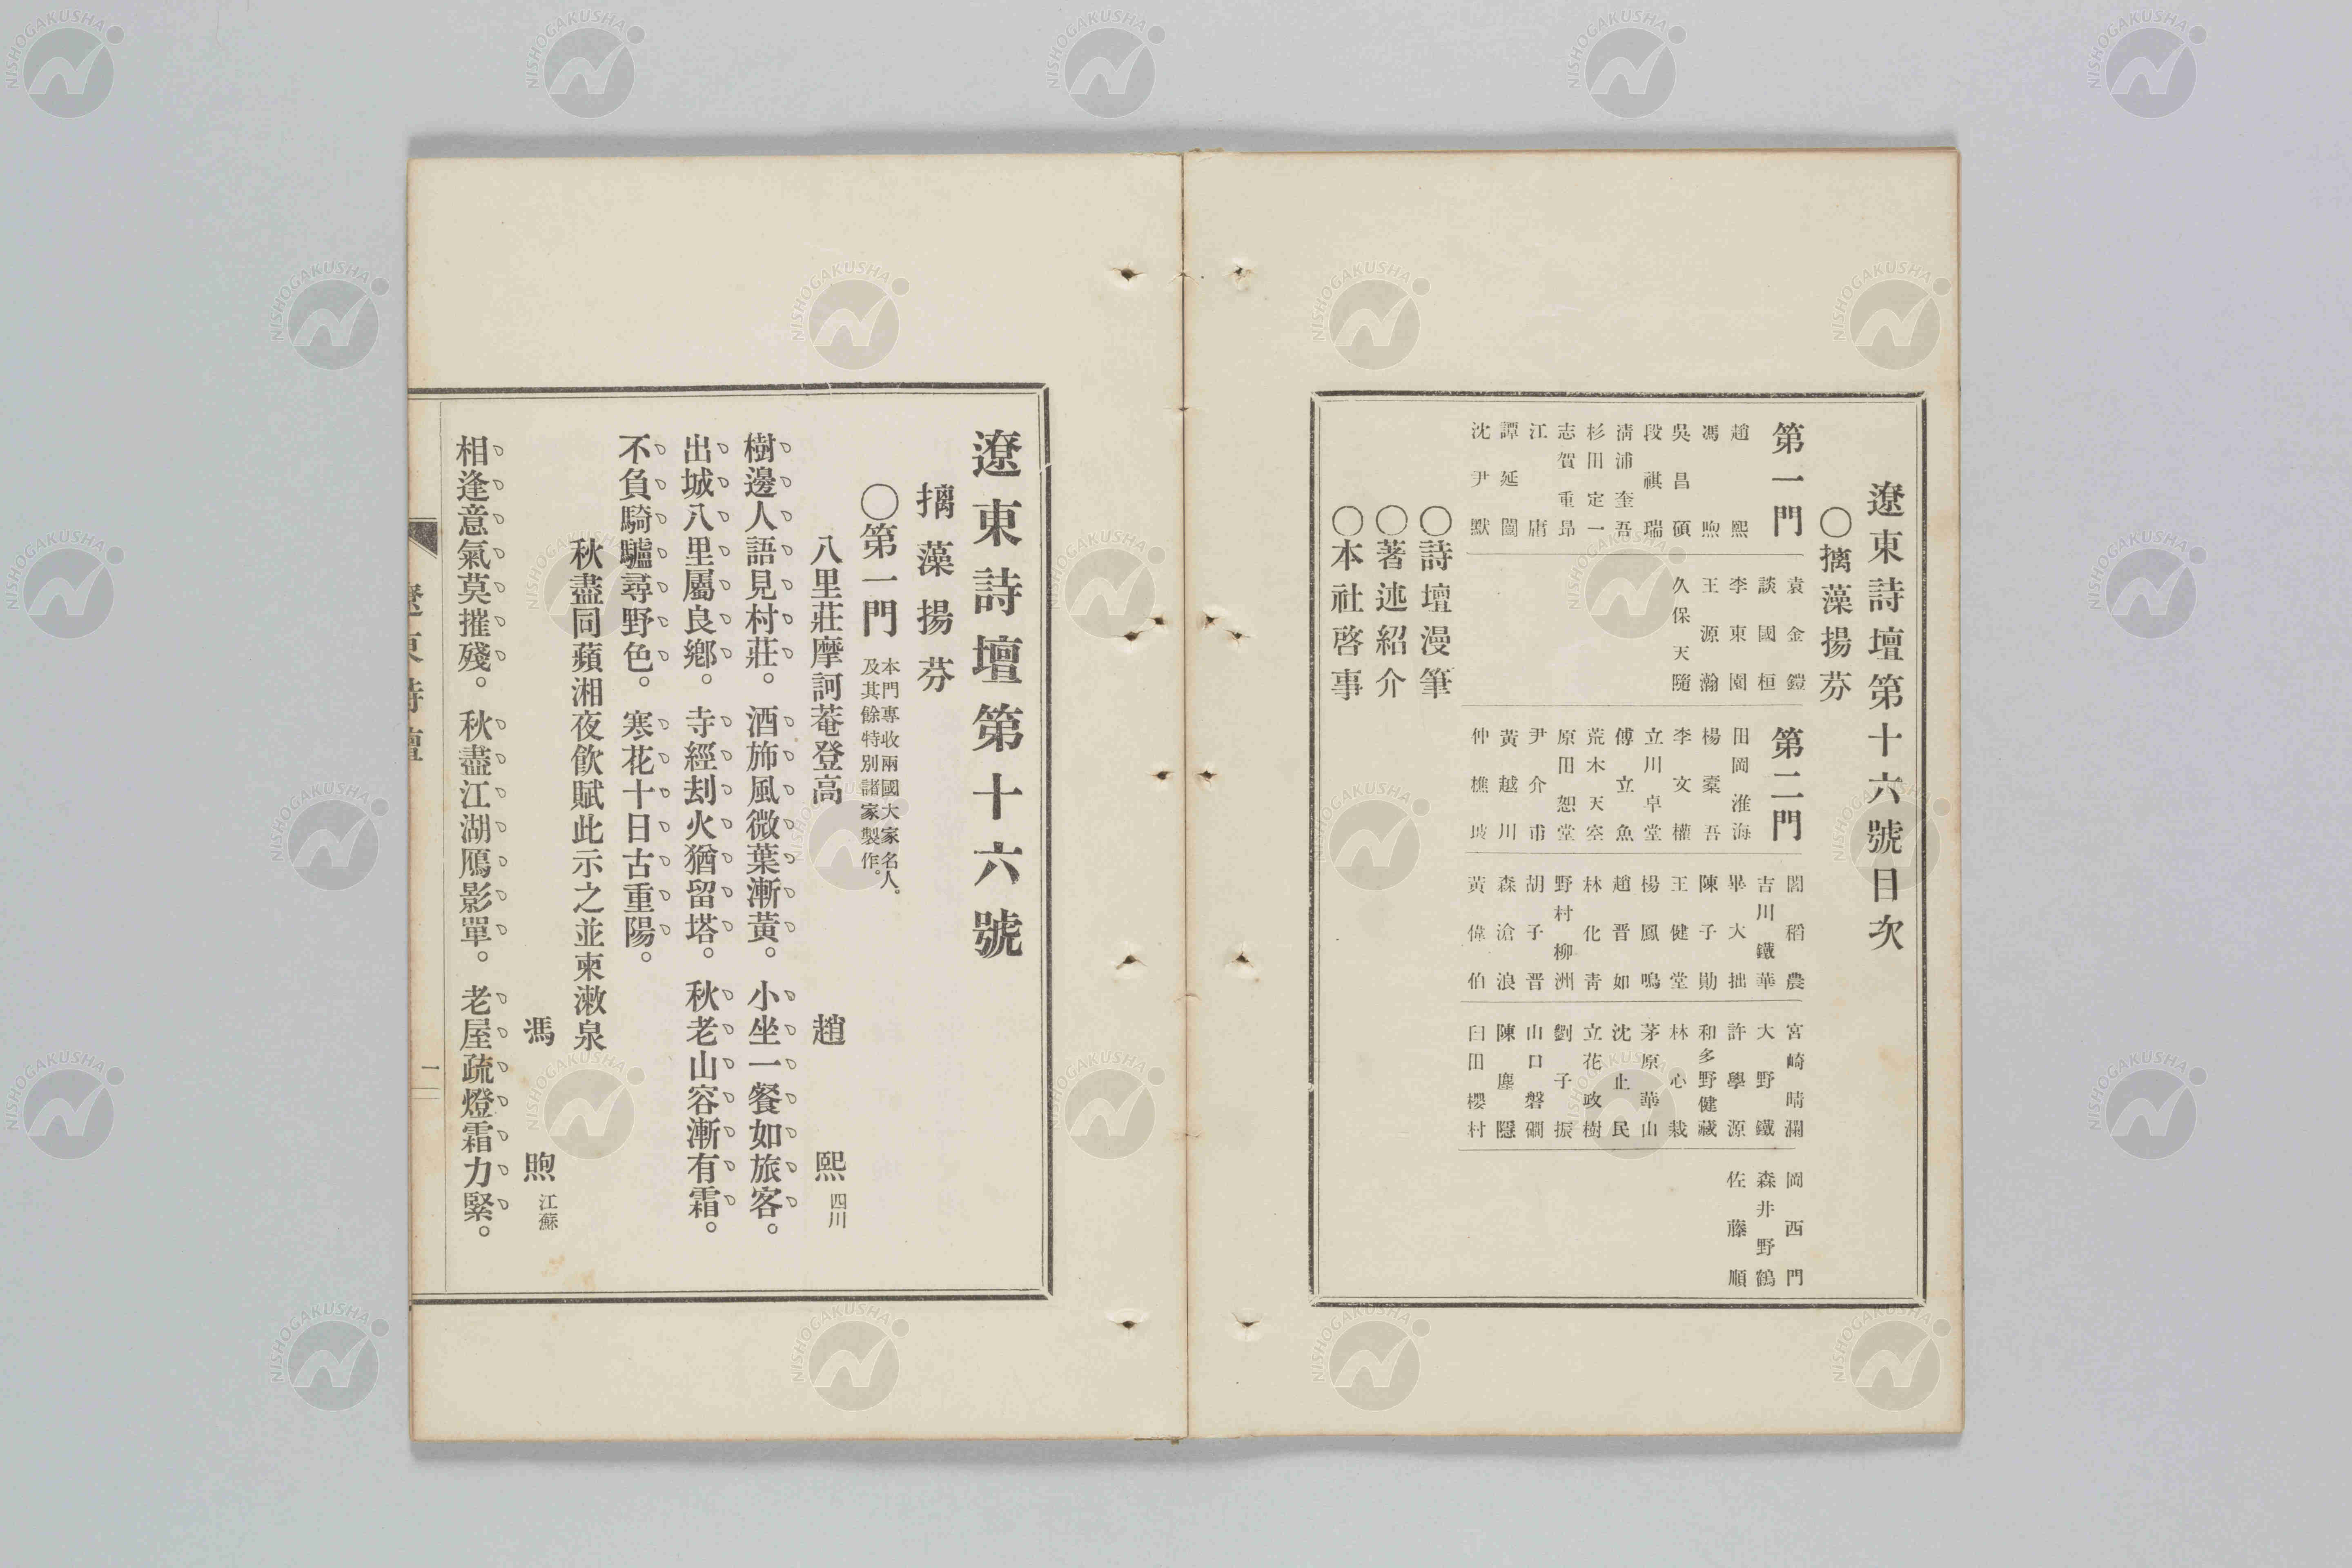 遼東詩壇第十六號目次
〇摛藻揚芬
第一門
趙熙
馮煦
吳昌碩
段祺瑞
淸浦奎吾
杉田定一
志賀重昻
江庸
譚延闓
沈尹默
袁金鎧
談國桓
李東園
王源瀚
久保天隨
第二門
田岡淮海
楊槖吾
李文權
立川卓堂
傅立魚
荒木天空
原田恕堂
尹介甫
黃越川
仲樵坡
閻稻農
吉川鐵華
畢大拙
陳子勛
王健堂
楊鳳鳴
趙晋如
林化靑
野村柳洲
胡子晋
森滄浪
黃偉伯
宮崎晴瀾
大野鐵
許學源
和多野健藏
林心栽
茅原華山
沈止民
立花政樹
劉子振
山口磐礀
陳塵隱
臼田櫻村
岡西門
森井野鶴
佐藤順
〇詩壇漫筆
〇著述紹介
〇本社啓事
遼東詩壇第十六號
摛藻揚芬
〇第一門 本門專收兩國大家名人。
及其餘特別諸家製作。
八里莊摩訶菴登高 趙熙 四川
樹邊人語見村莊。酒斾風微葉漸黃。小坐一餐如旅客。
出城八里屬良鄕。寺經刦火猶留塔。秋老山容漸有霜。
不負騎驢尋野色。寒花十日古重陽。
秋盡同蘋湘夜飮賦此示之並柬漱泉
馮煦 江蘇
相逢意氣莫摧殘。秋盡江湖鴈影單。老屋疏燈霜力緊。
遼東詩壇
一
NISHOGAKUSHA